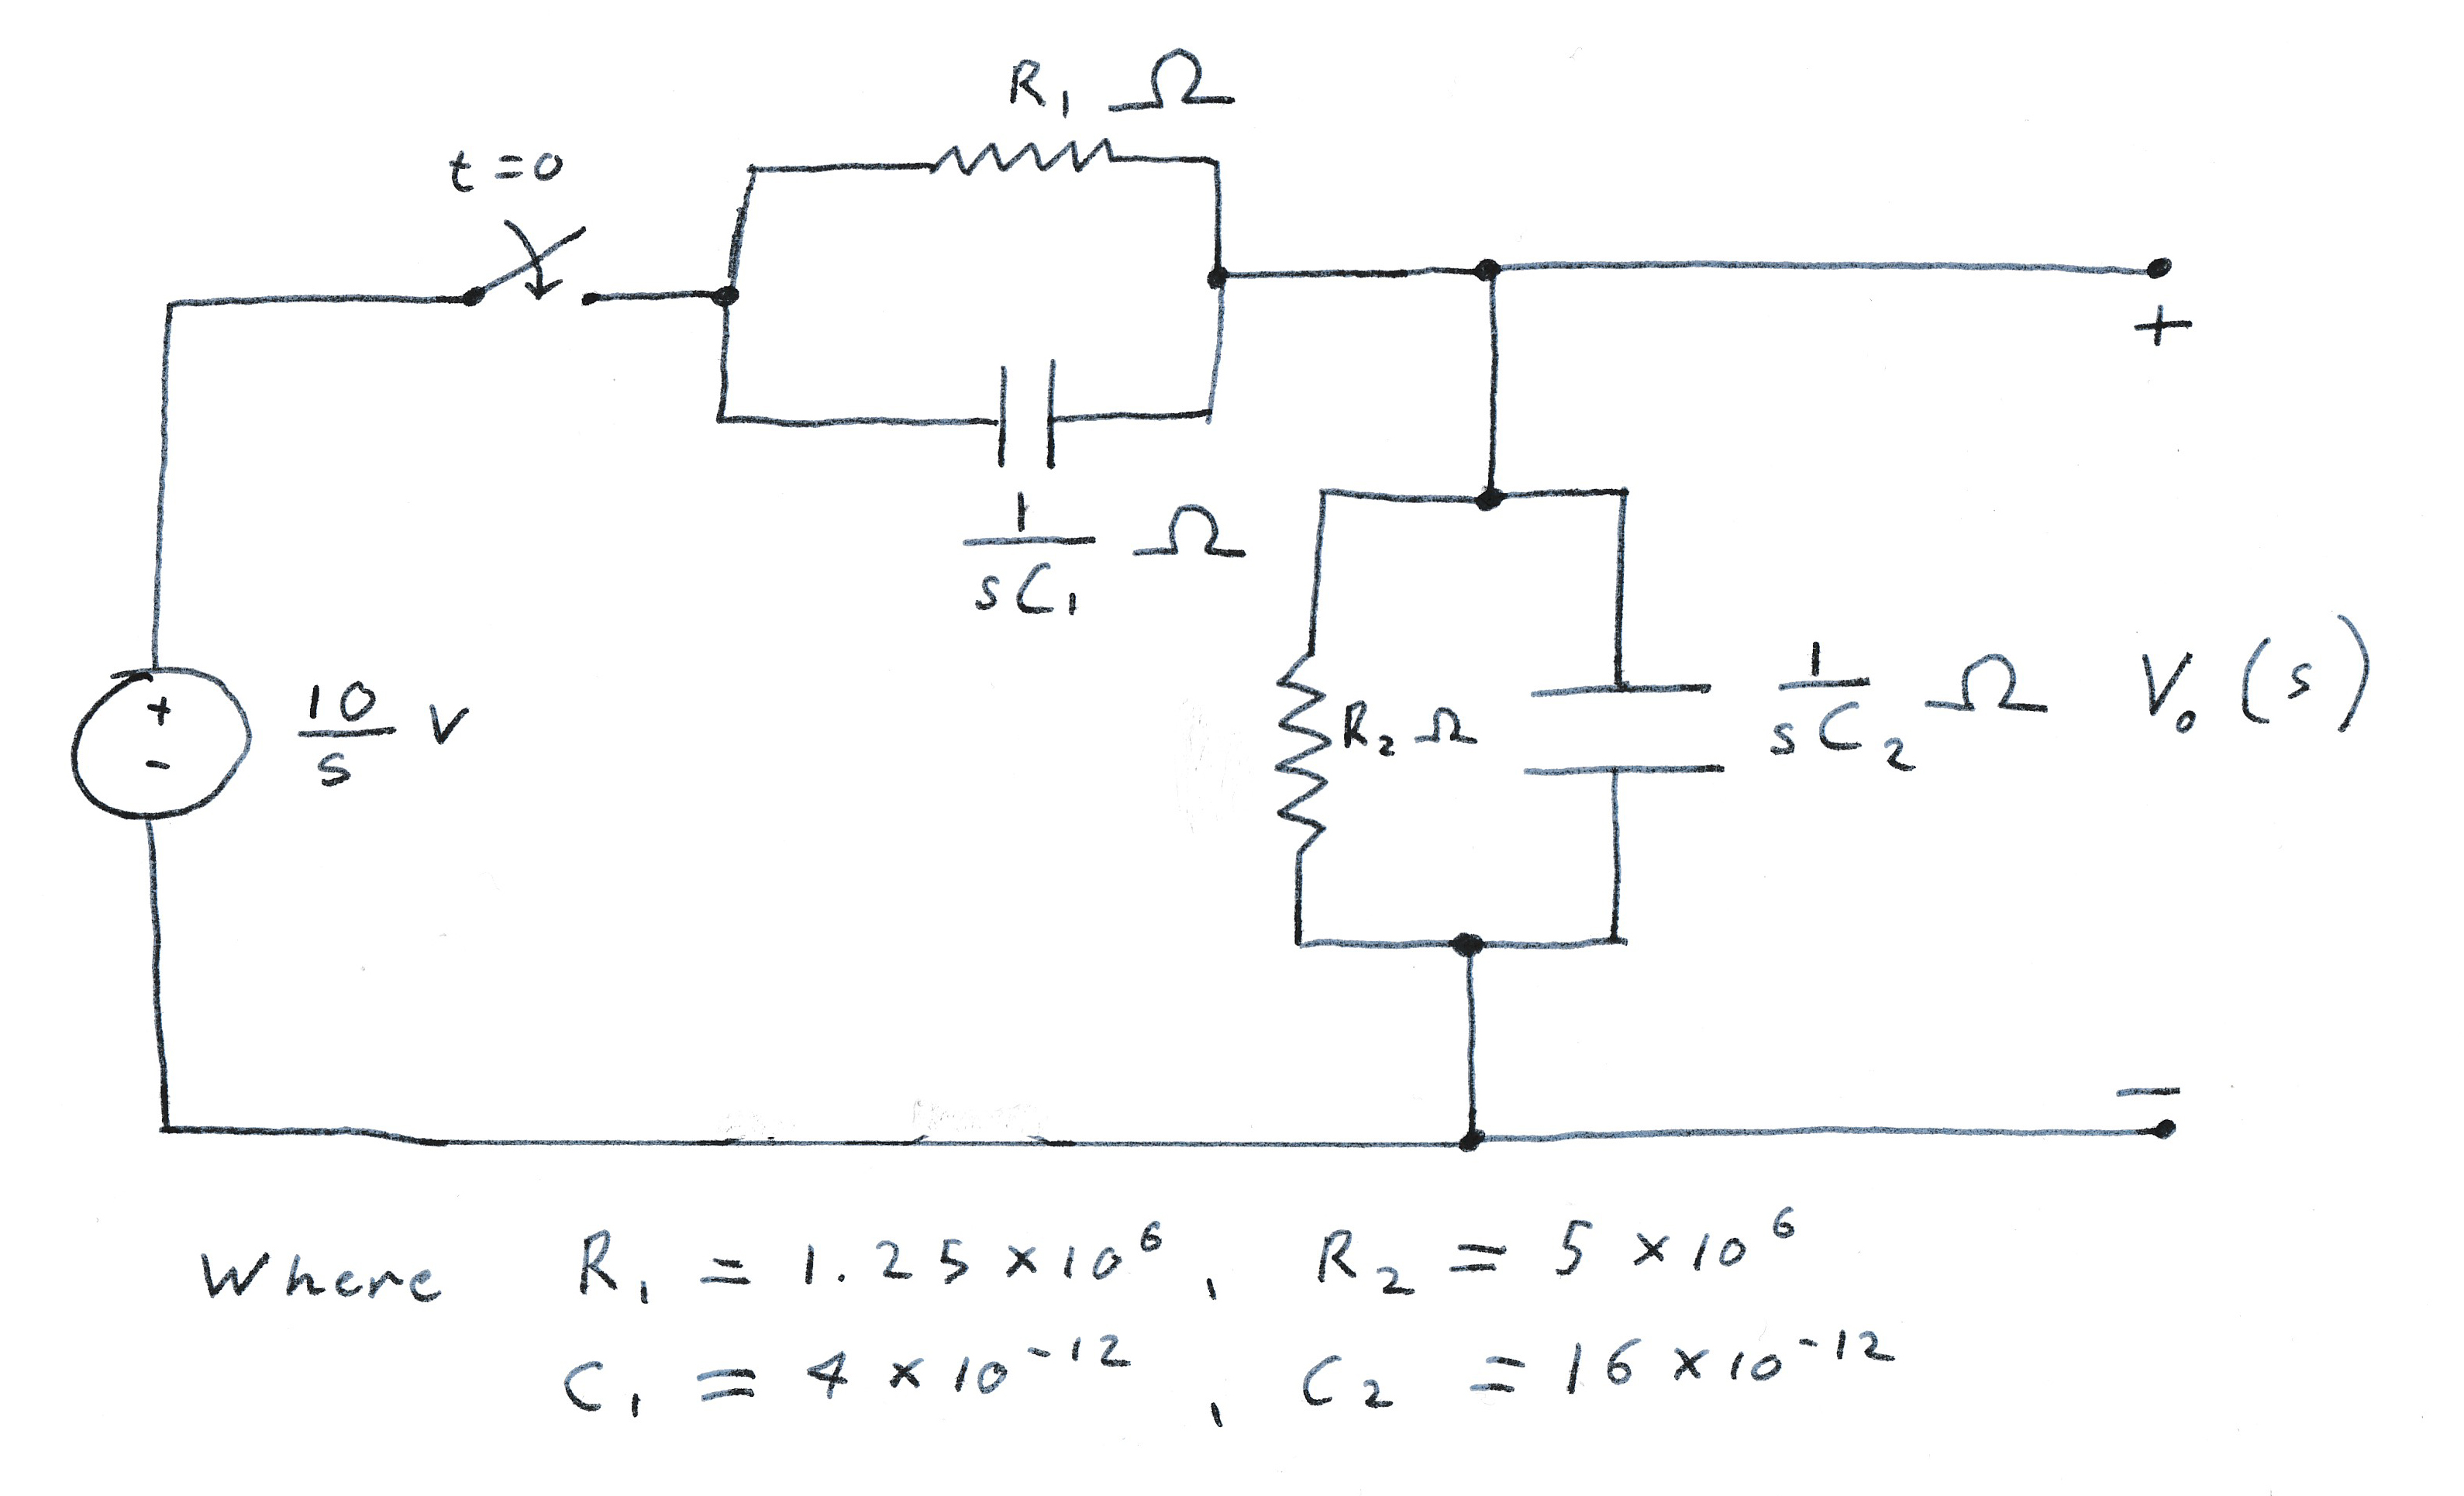 R₁ Ω
t = 0
1/sC₁ Ω
+
+
-
10/s V
R₂ Ω
1/sC₂ Ω
V₀ (s)
−
Where R₁ = 1.25 × 10⁶ , R₂ = 5 × 10⁶
C₁ = 4 × 10⁻¹² , C₂ = 16 × 10⁻¹²